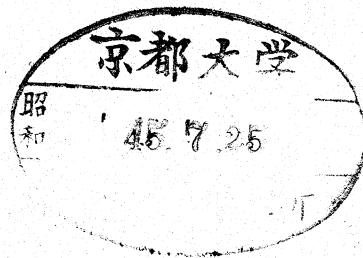 京都大学
昭和
45.7.25